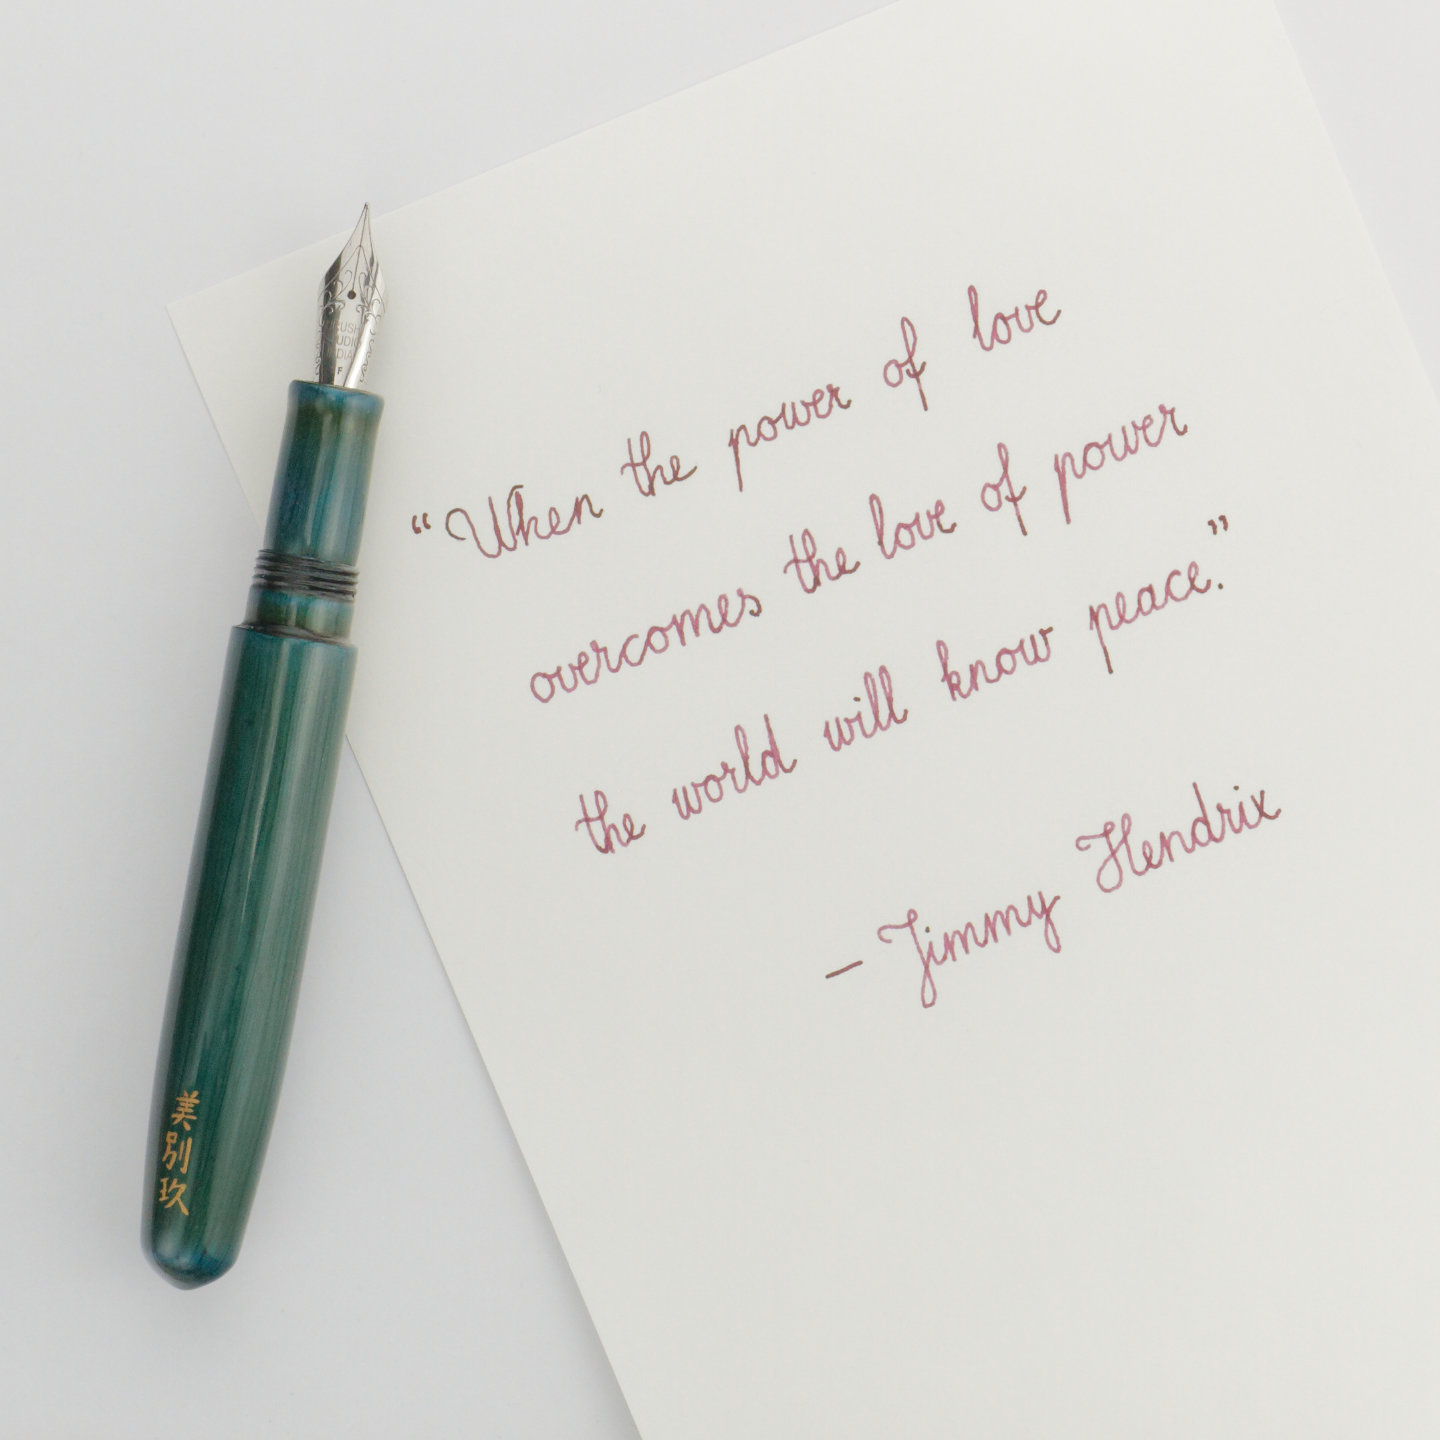 “When the power of love
overcomes the love of power
the world will know peace.”
– Jimmy Hendrix
F
美別玖